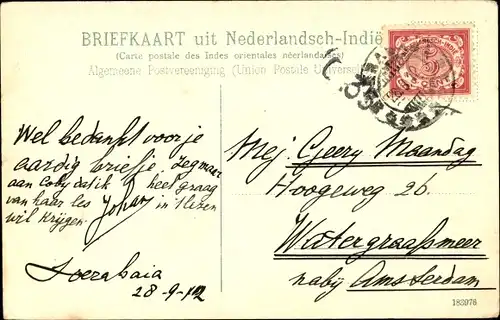 BRIEFKAART uit Nederlandsch-Indië
(Carte postale des Indes orientales néerlandaises)
Algemeene Postvereeniging (Union Postale Universelle)
5
CENT
Wel bedankt voor je
aardig briefje zeg maar
aan Coby dat ik heel graag
van haar les in 't lezen
wil krijgen. Johan
Soerabaia
28-9-12
Mej. Geery Maandag
Hoogeweg 26
Watergraafsmeer
nabij Amsterdam
182976